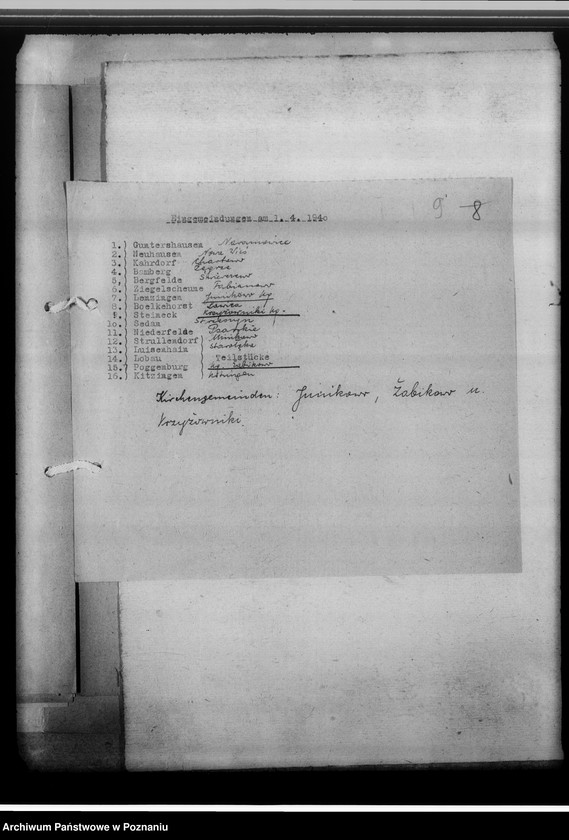 9 8
Eingemeindungen am 1. 4. 1940
1.) Guntershausen Naramowice
2.) Neuhausen Nowa Wieś
3.) Kahrdorf Chartowo
4.) Bomberg Żegrze
5.) Bergfelde
6.) Ziegelscheune Fabianowo
7.) Lenzingen Junikowo kg.
8.) Boelkehorst Ławica
9.) Steineck Krzyżowniki kg.
10.) Sedan
11.) Niederfelde Psarskie
12.) Strullendorf Minikowo
13.) Luisenhain Starołęka
14.) Lobau Teilstücke
15.) Poggenburg kg. Żabikowo
16.) Kitzingen
Kirchengemeinden: Junikowo, Żabikowo u.
Krzyżowniki.
Archiwum Państwowe w Poznaniu